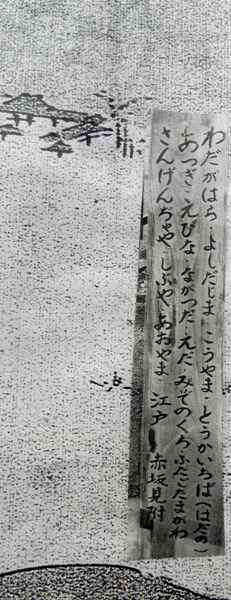 わだがはら・よしだじま・こうやま・とうかいちば(はだの)
あつぎ・えびな・ながつだ・えだ・みぞのくち・ふたごたまがわ
さんげんぢゃや・しぶや・あおやま・江戸 赤坂見附